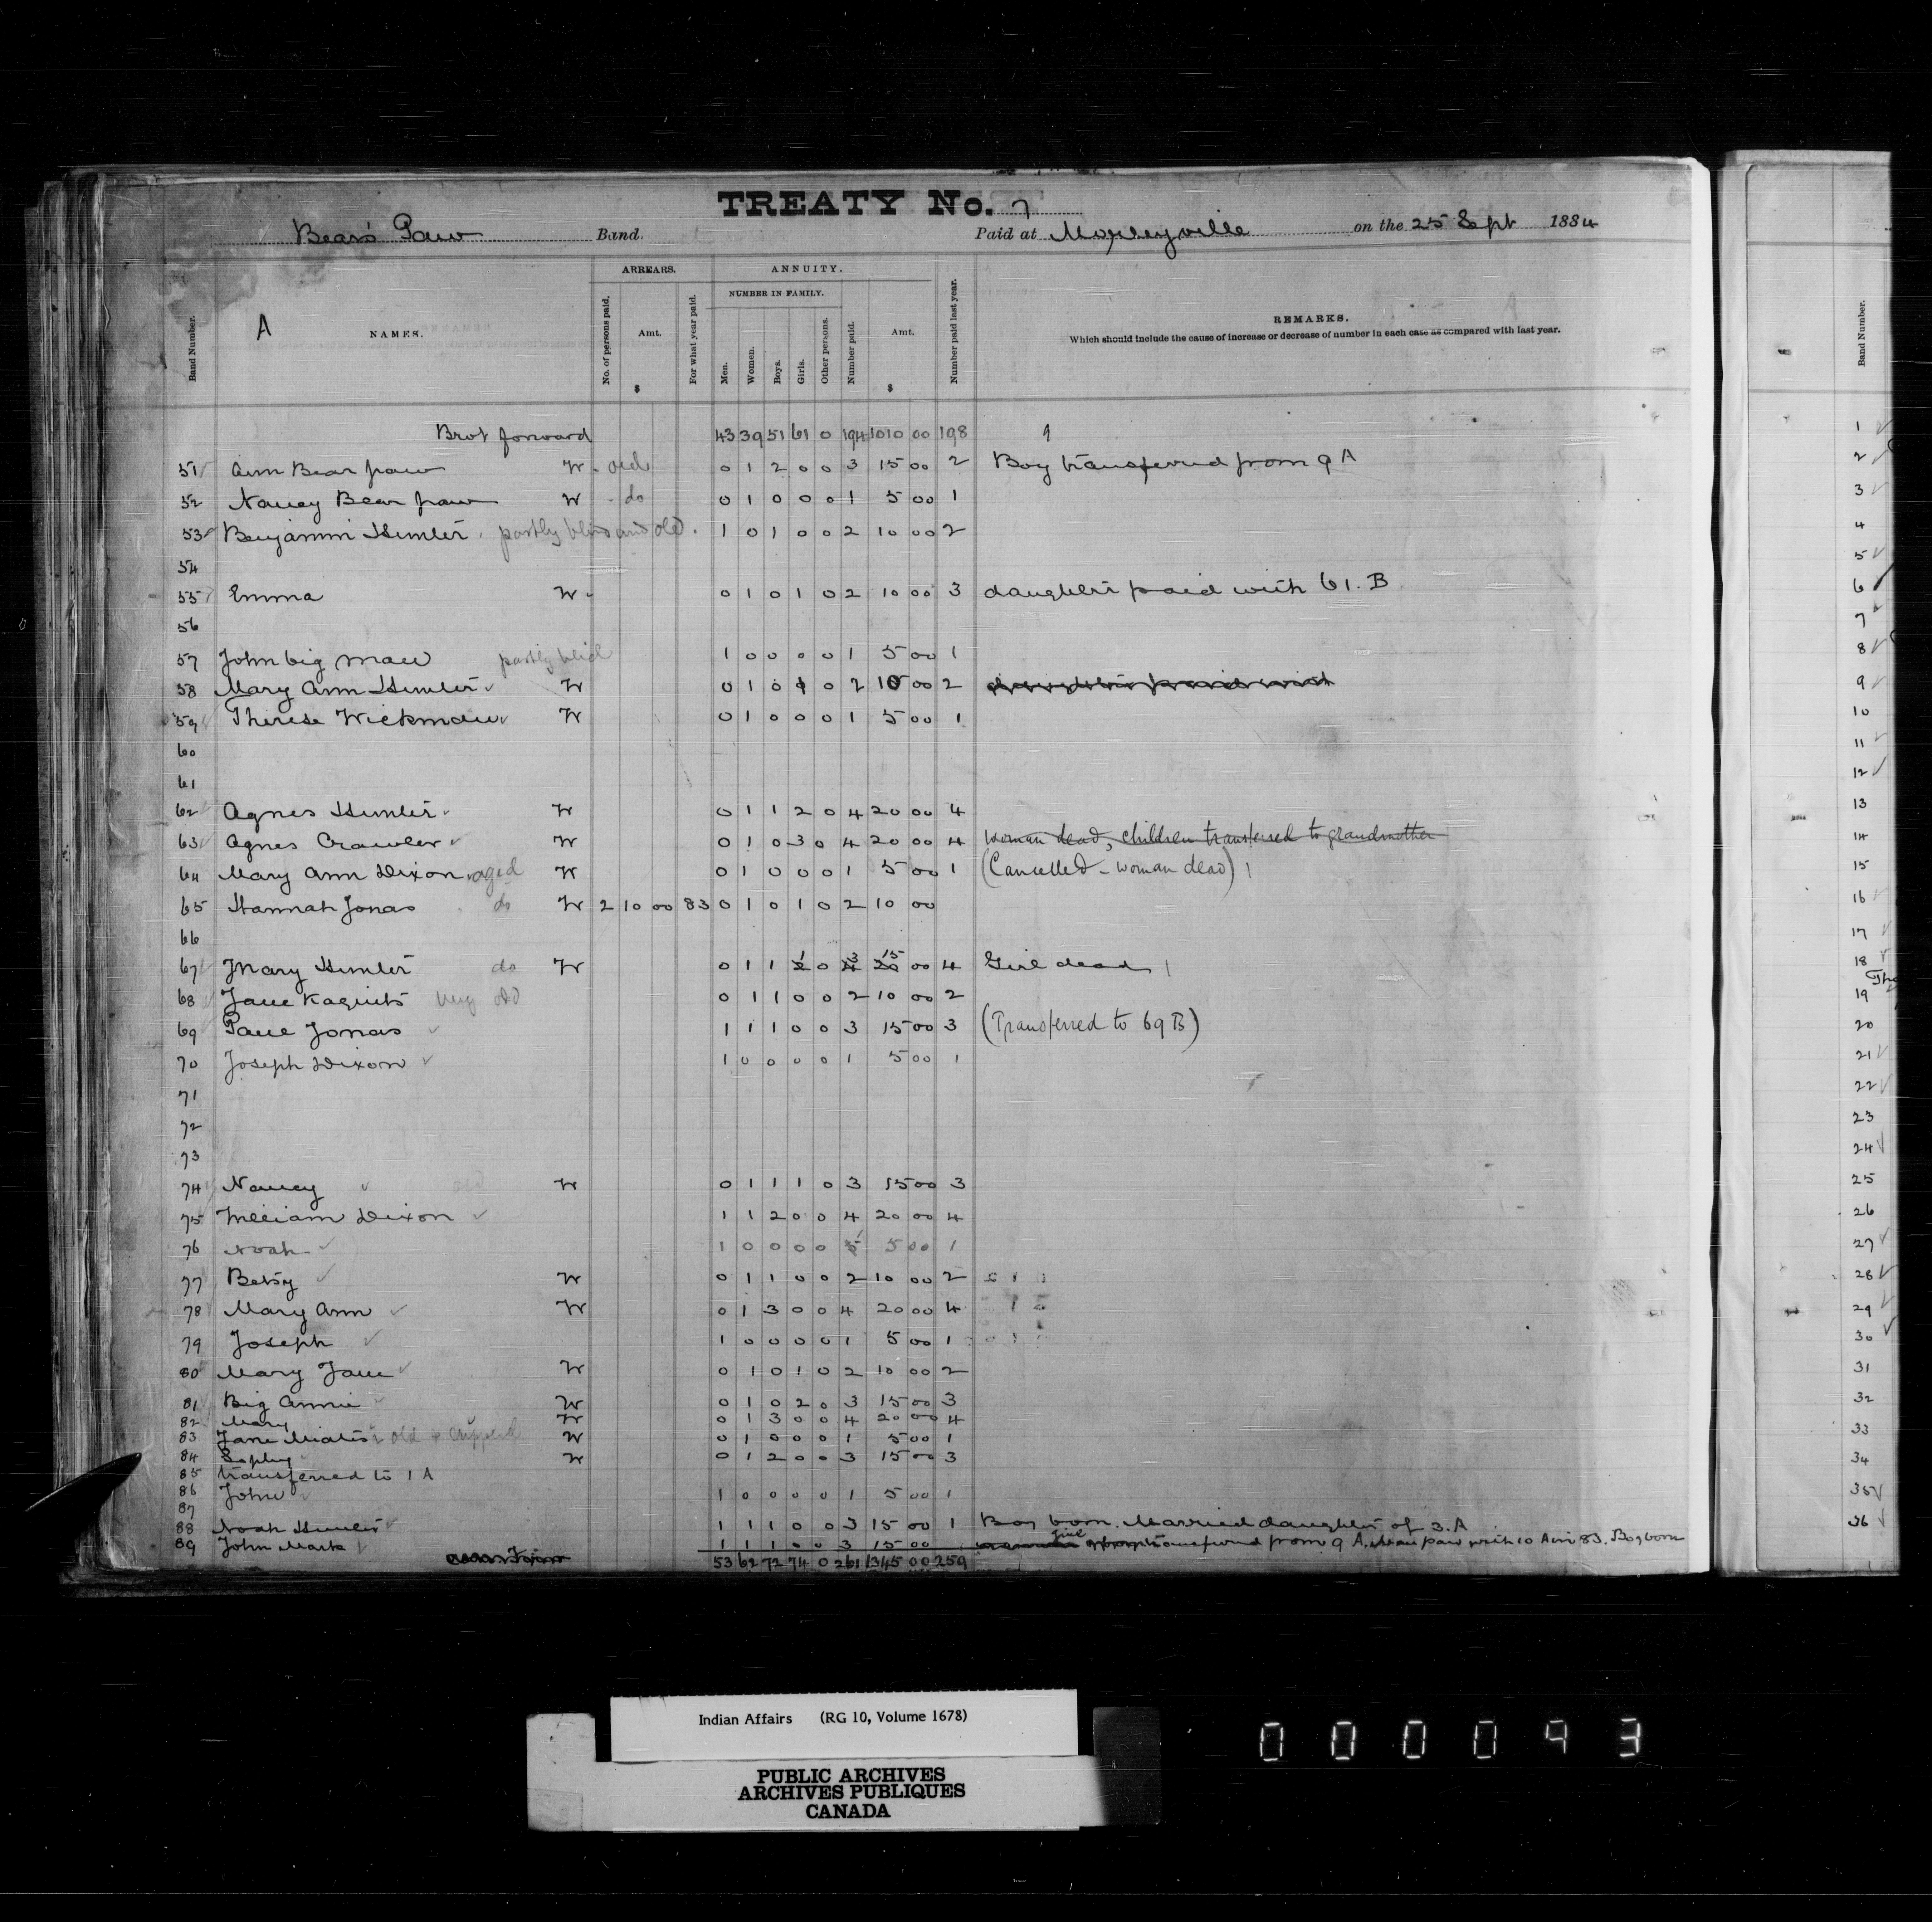 TREATY No. 7
Bear's Paw Band. Paid at Morleyville on the 25 Sept 1884
ARREARS. ANNUITY.
NUMBER IN FAMILY.
A
Band Number. NAMES. No. of persons paid. Amt. $ For what year paid. Men. Women. Boys. Girls. Other persons. Number paid. Amt. $ Number paid last year. REMARKS.
Which should include the cause of increase or decrease of number in each case as compared with last year.
Brot forward 43 39 51 61 0 194 1010 00 198 9
51 Ann Bear paw W old 0 1 2 0 0 3 15 00 2 Boy transferred from 9 A
52 Nancy Bear paw W do 0 1 0 0 0 1 5 00 1
53 Benjamin Hunter partly blind and old. 1 0 1 0 0 2 10 00 2
54
55 Emma W 0 1 0 1 0 2 10 00 3 daughter paid with 61. B
56
57 John big man partly blind 1 0 0 0 0 1 5 00 1
58 Mary Ann Hunter W 0 1 0 1 0 2 10 00 2 daughter paid with
59 Therese Wickman W 0 1 0 0 0 1 5 00 1
60
61
62 Agnes Hunter W 0 1 1 2 0 4 20 00 4
63 Agnes Crawler W 0 1 0 3 0 4 20 00 4 woman dead, children transferred to grandmother
64 Mary Ann Dixon aged W 0 1 0 0 0 1 5 00 1 (Cancelled - woman dead) 1
65 Hannah Jonas do W 2 10 00 83 0 1 0 1 0 2 10 00
66
67 Mary Hunter do W 0 1 1 2 1 0 4 3 20 15 00 4 Girl dead 1
68 Jane Kaquits very old 0 1 1 0 0 2 10 00 2
69 Paul Jonas 1 1 1 0 0 3 15 00 3 (Transferred to 69 B)
70 Joseph Dixon 1 0 0 0 0 1 5 00 1
71
72
73
74 Nancy old W 0 1 1 1 0 3 15 00 3
75 William Dixon 1 1 2 0 0 4 20 00 4
76 Noah 1 0 0 0 0 5 1 5 00 1
77 Betsy W 0 1 1 0 0 2 10 00 2
78 Mary Ann W 0 1 3 0 0 4 20 00 4
79 Joseph 1 0 0 0 0 1 5 00 1
80 Mary Jane W 0 1 0 1 0 2 10 00 2
81 Big Annie W 0 1 0 2 0 3 15 00 3
82 Mary W 0 1 3 0 0 4 20 00 4
83 Jane old & crippled W 0 1 0 0 0 1 5 00 1
84 Sophy W 0 1 2 0 0 3 15 00 3
85 transferred to 1 A
86 John 1 0 0 0 0 1 5 00 1
87
88 Noah Hunter 1 1 1 0 0 3 15 00 1 Boy born. Married daughter of 3. A
89 John Mark 1 1 1 0 0 3 15 00 girl transferred from 9 A. Man paid with 10 A in 83. Boy born
53 62 72 74 0 261 1345 00 259
Band Number.
1
2
3
4
5
6
7
8
9
10
11
12
13
14
15
16
17
18
19
20
21
22
23
24
25
26
27
28
29
30
31
32
33
34
35
36
Indian Affairs (RG 10, Volume 1678)
PUBLIC ARCHIVES
ARCHIVES PUBLIQUES
CANADA
000093